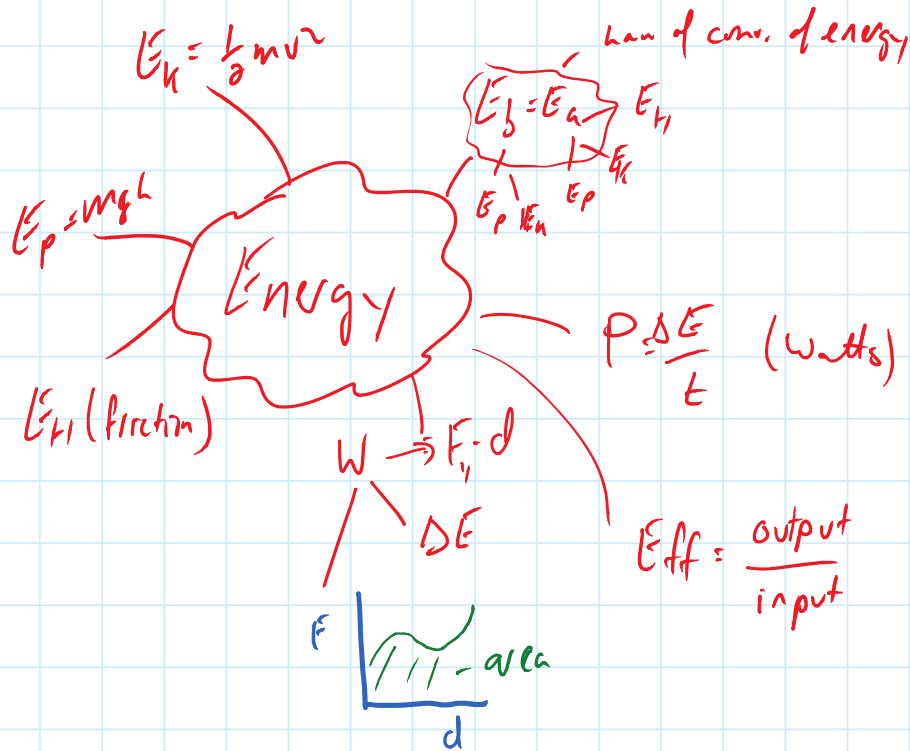 Law of conv. of energy
E_k = 1/2 mv²
E_b = E_a
E_H
E_k
E_p
E_k
E_p
E_p = mgh
Energy
P = ΔE/t (Watts)
E_H (friction)
W → F_∥ · d
ΔE
Eff = output/input
F
area
d